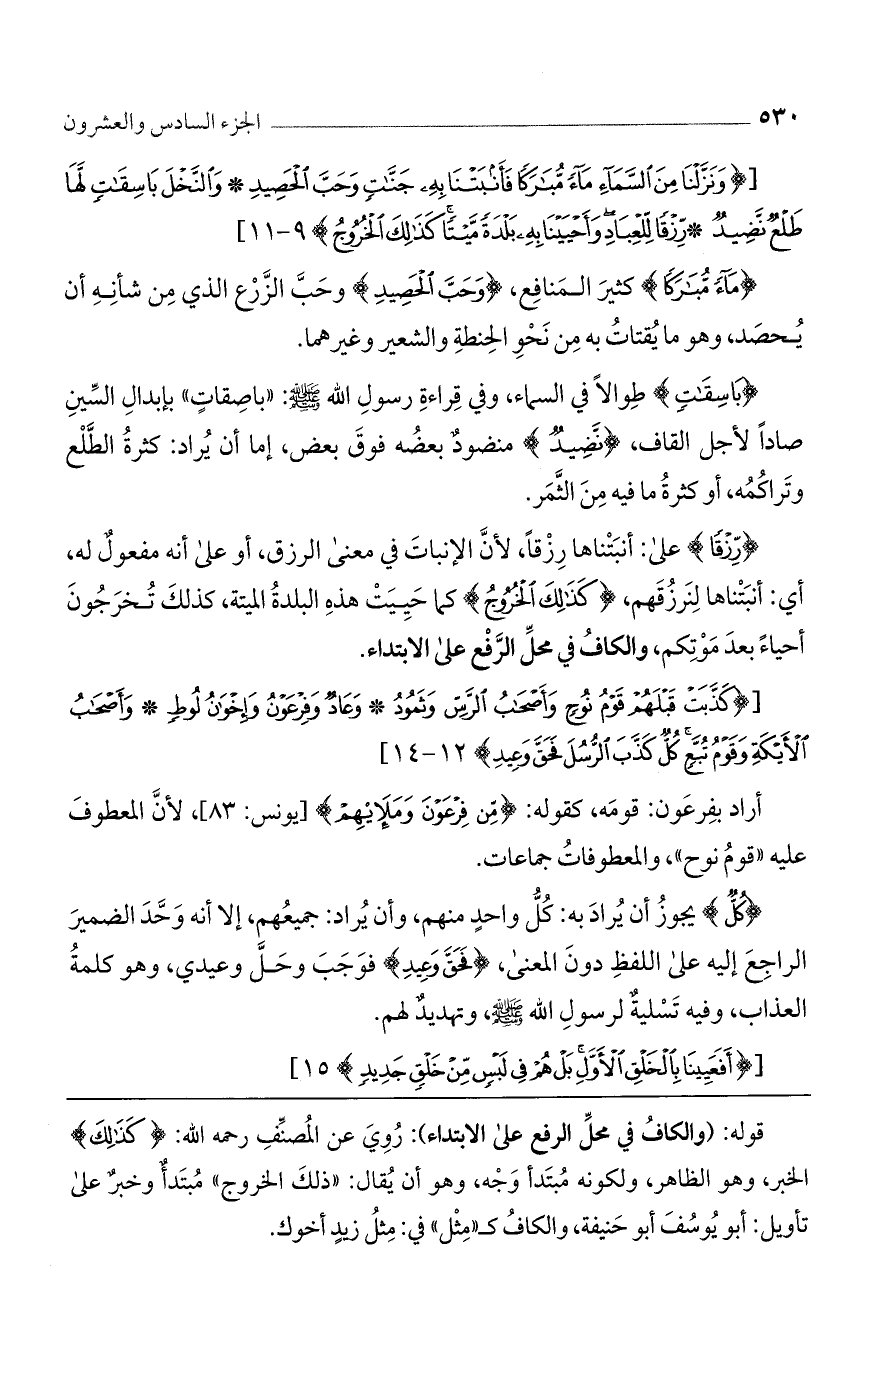 ٥٣٠ الجزء السادس والعشرون
[﴿وَنَزَّلْنَا مِنَ ٱلسَّمَآءِ مَآءً مُّبَٰرَكًا فَأَنۢبَتْنَا بِهِۦ جَنَّٰتٍ وَحَبَّ ٱلْحَصِيدِ * وَٱلنَّخْلَ بَاسِقَٰتٍ لَّهَا
طَلْعٌ نَّضِيدٌ * رِّزْقًا لِّلْعِبَادِ ۖ وَأَحْيَيْنَا بِهِۦ بَلْدَةً مَّيْتًا ۚ كَذَٰلِكَ ٱلْخُرُوجُ﴾ ٩-١١]
﴿مَآءً مُّبَٰرَكًا﴾ كثيرَ الـمَنافِع، ﴿وَحَبَّ ٱلْحَصِيدِ﴾ وحَبَّ الزَّرْع الذي مِن شأنِـهِ أن
يُـحصَد، وهو ما يُقتاتُ به مِن نَحْوِ الحِنطةِ والشعير وغيرهما.
﴿بَاسِقَٰتٍ﴾ طِوالاً في السماء، وفي قِراءةِ رسولِ الله ﷺ: «باصِقاتٍ» بإبدالِ السِّينِ
صاداً لأجل القاف، ﴿نَّضِيدٌ﴾ منضودٌ بعضُه فوقَ بعض، إما أن يُراد: كثرةُ الطَّلْع
وتَراكُمُه، أو كثرةُ ما فيه مِنَ الثَّمَر.
﴿رِّزْقًا﴾ علىٰ: أنبَتْناها رِزْقاً، لأنَّ الإنباتَ في معنىٰ الرزق، أو علىٰ أنه مفعولٌ له،
أي: أنبَتْناها لِنَرزُقَهم، ﴿كَذَٰلِكَ ٱلْخُرُوجُ﴾ كما حَيِـيَتْ هذهِ البلدةُ الميتة، كذلكَ تُـخرَجُونَ
أحياءً بعدَ مَوْتِكم، والكافُ في محلِّ الرَّفْع علىٰ الابتداء.
[﴿كَذَّبَتْ قَبْلَهُمْ قَوْمُ نُوحٍ وَأَصْحَٰبُ ٱلرَّسِّ وَثَمُودُ * وَعَادٌ وَفِرْعَوْنُ وَإِخْوَٰنُ لُوطٍ * وَأَصْحَٰبُ
ٱلْأَيْكَةِ وَقَوْمُ تُبَّعٍ ۚ كُلٌّ كَذَّبَ ٱلرُّسُلَ فَحَقَّ وَعِيدِ﴾ ١٢-١٤]
أراد بفِرعَون: قومَه، كقوله: ﴿مِّن فِرْعَوْنَ وَمَلَإِيْهِمْ﴾ [يونس: ٨٣]، لأنَّ المعطوفَ
عليه «قومُ نوح»، والمعطوفاتُ جماعات.
﴿كُلٌّ﴾ يجوزُ أن يُرادَ به: كُلُّ واحدٍ منهم، وأن يُراد: جميعُهم، إلا أنه وَحَّدَ الضميرَ
الراجِعَ إليه علىٰ اللفظِ دونَ المعنىٰ، ﴿فَحَقَّ وَعِيدِ﴾ فوَجَبَ وحَـلَّ وعيدي، وهو كلمةُ
العذاب، وفيه تَسْليةٌ لرسولِ الله ﷺ، وتهديدٌ لهم.
[﴿أَفَعَيِينَا بِٱلْخَلْقِ ٱلْأَوَّلِ ۚ بَلْ هُمْ فِي لَبْسٍ مِّنْ خَلْقٍ جَدِيدٍ﴾ ١٥]
قوله: (والكافُ في محلِّ الرفع علىٰ الابتداء): رُوِيَ عن المُصنِّفِ رحمه الله: ﴿كَذَٰلِكَ﴾
الخبر، وهو الظاهر، ولكونه مُبتَدأ وَجْه، وهو أن يُقال: «ذلكَ الخروج» مُبتَدأٌ وخبرٌ علىٰ
تأويل: أبو يُوسُفَ أبو حَنيفة، والكافُ كـ«مِثْل» في: مِثلُ زيدٍ أخوك.